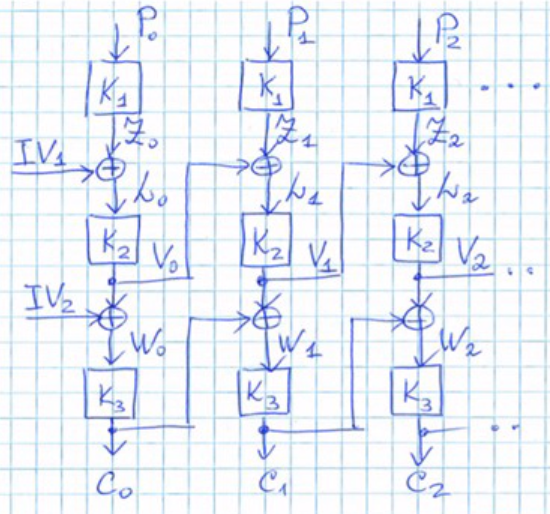 P₀ P₁ P₂
K₁ K₁ K₁ ....
Z₀ Z₁ Z₂
IV₁
L₀ L₁ L₂
K₂ K₂ K₂
V₀ V₁ V₂ ..
IV₂
W₀ W₁ W₂
K₃ K₃ K₃
..
C₀ C₁ C₂